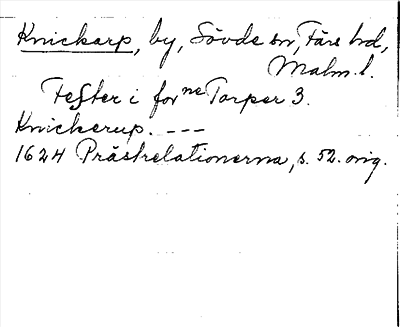 Knickarp, by, Sövde sn, Färs hd,
Malm. l.
Tester i for ne Torper 3.
Knickerup. ---
1624 Prästrelationerna, s. 52. orig.